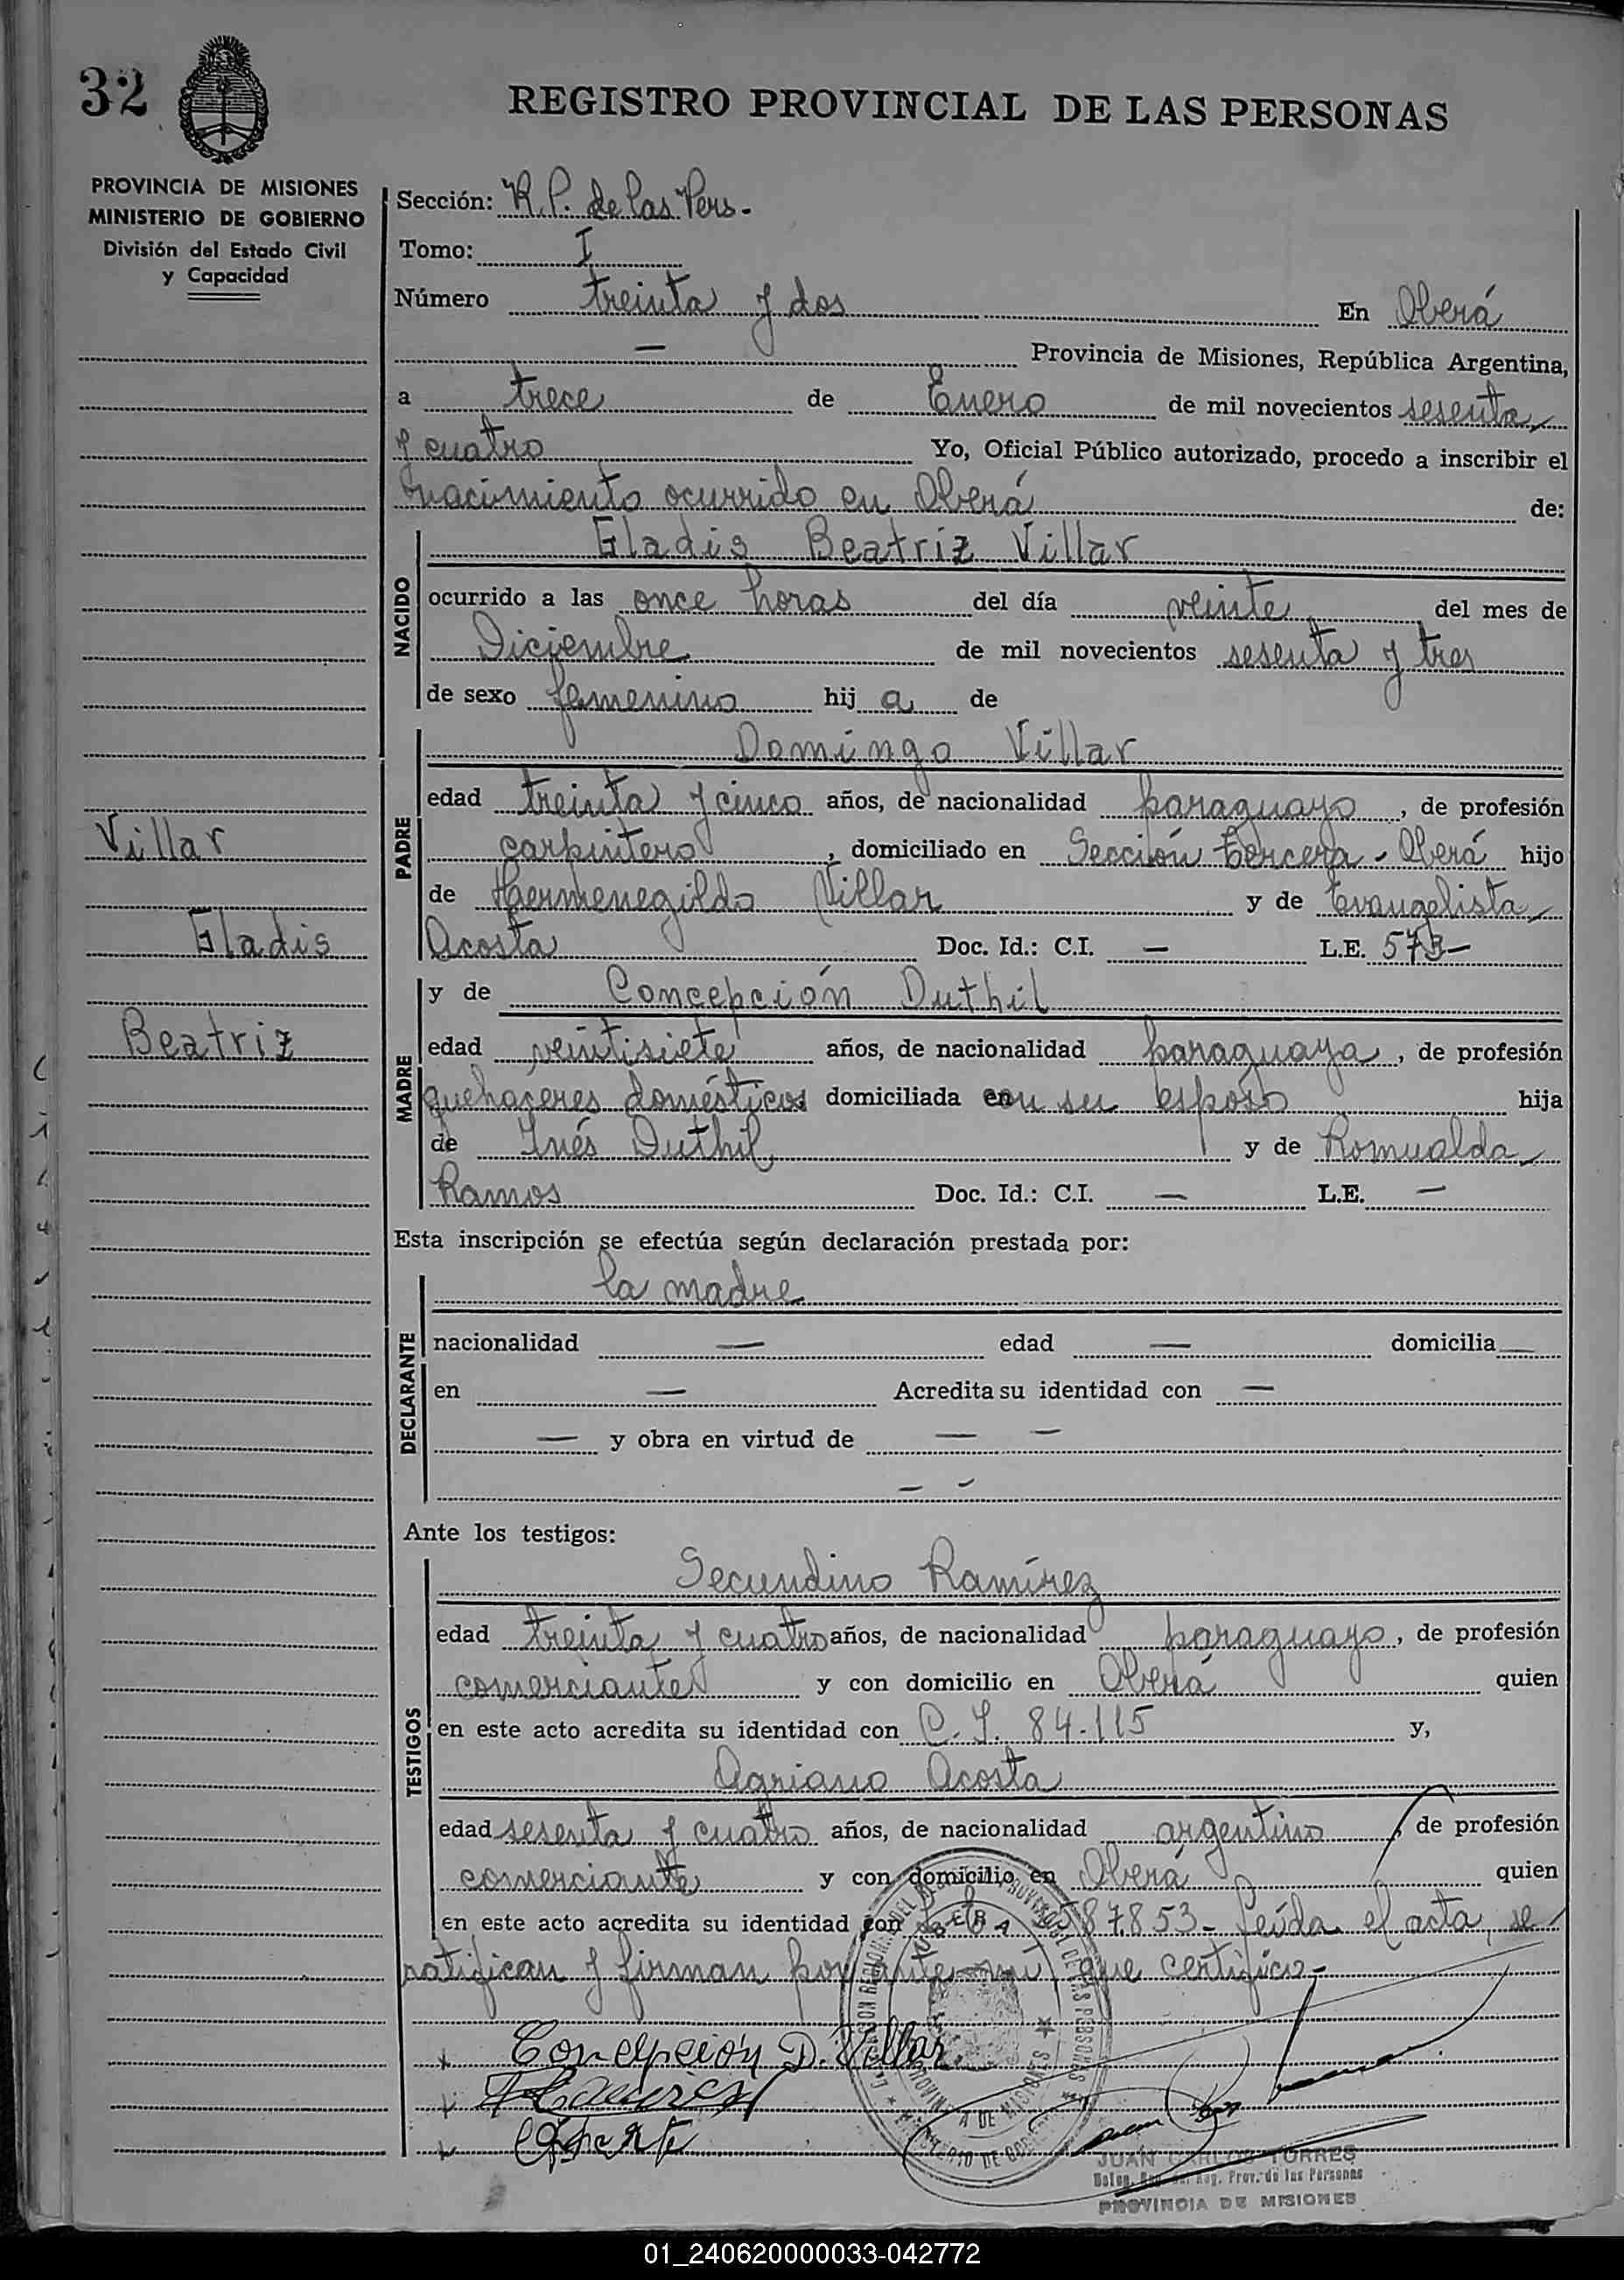 32
REGISTRO PROVINCIAL DE LAS PERSONAS
PROVINCIA DE MISIONES
MINISTERIO DE GOBIERNO
División del Estado Civil
y Capacidad
Sección: R.P. de las Pers.
Tomo: I
Número treinta y dos En Oberá
— Provincia de Misiones, República Argentina,
a trece de Enero de mil novecientos sesenta
y cuatro Yo, Oficial Público autorizado, procedo a inscribir el
nacimiento ocurrido en Oberá de:
NACIDO
Gladis Beatriz Villar
ocurrido a las once horas del día veinte del mes de
Diciembre de mil novecientos sesenta y tres
de sexo femenino hij a de
PADRE
Domingo Villar
edad treinta y cinco años, de nacionalidad paraguayo, de profesión
carpintero, domiciliado en Sección Tercera - Oberá hijo
de Hermenegildo Villar y de Evangelista
Acosta Doc. Id.: C.I. — L.E. 573-
Villar
Gladis
Beatriz
MADRE
y de Concepción Duthil
edad veintisiete años, de nacionalidad paraguaya, de profesión
quehaceres domésticos domiciliada con su esposo hija
de Inés Duthil y de Romualda
Ramos Doc. Id.: C.I. — L.E. —
Esta inscripción se efectúa según declaración prestada por:
DECLARANTE
la madre
nacionalidad — edad — domicilia —
en — Acredita su identidad con —
— y obra en virtud de — —
— —
Ante los testigos:
TESTIGOS
Secundino Ramírez
edad treinta y cuatro años, de nacionalidad paraguayo, de profesión
comerciante y con domicilio en Oberá quien
en este acto acredita su identidad con C.I. 84.115 y,
Agriano Acosta
edad sesenta y cuatro años, de nacionalidad argentino, de profesión
comerciante y con domicilio en Oberá quien
en este acto acredita su identidad con 87.853- Leída el acta, se
ratifican y firman por ante mi que certifico-
Concepción D. Villar
JUAN CARLOS TORRES
Reg. Prov. de las Personas
PROVINCIA DE MISIONES
01_240620000033-042772